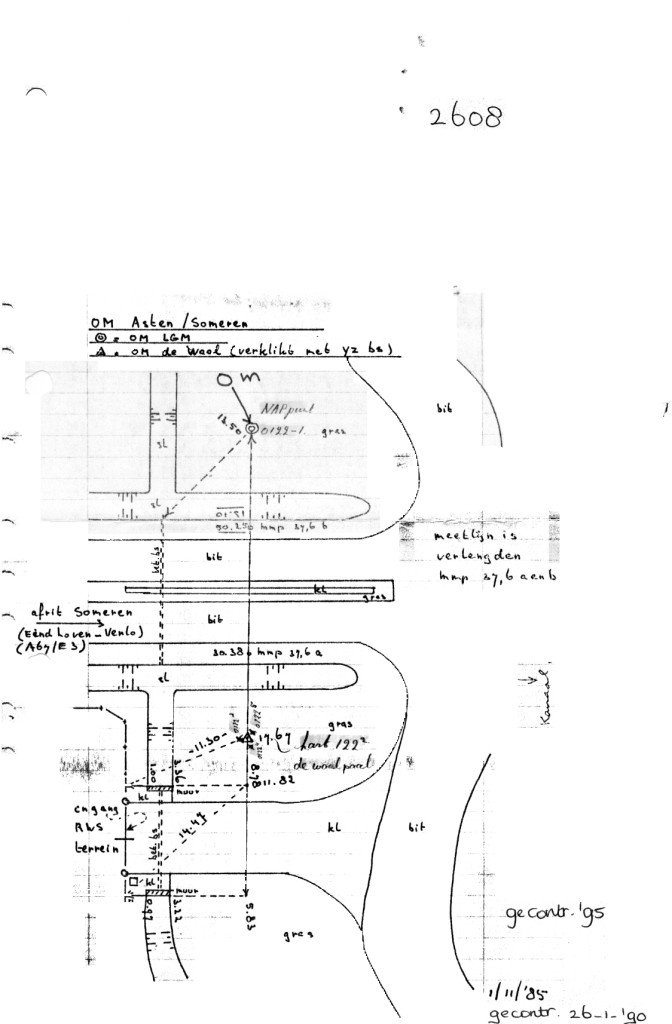 2608
OM Asten / Someren
⊚ = OM LGM
△ = OM de Waal (verklikt met yz bs)
O m
NAP paal
0122-1.
gras
13.50
bit
sl
sl
10.51
mmp 37,6 b
meetlijn is
verlengden
mmp 37,6 a en b
bet. bs
bit
kl
gras
afrit Someren
(Eindhoven-Venlo)
(A67/E3)
bit
30.38 mmp 37,6 a
sl
Kanaal
gras
11.30
17.67
hart 122²
de waal paal
8.78
11.82
1.00
3.36
muur
kl
engang
RWS
terrein
bet. bs
14.47
kl
bit
kl
muur
0.97
3.22
5.83
gras
gecontr. '95
1/11/'85
gecontr. 26-1-'90